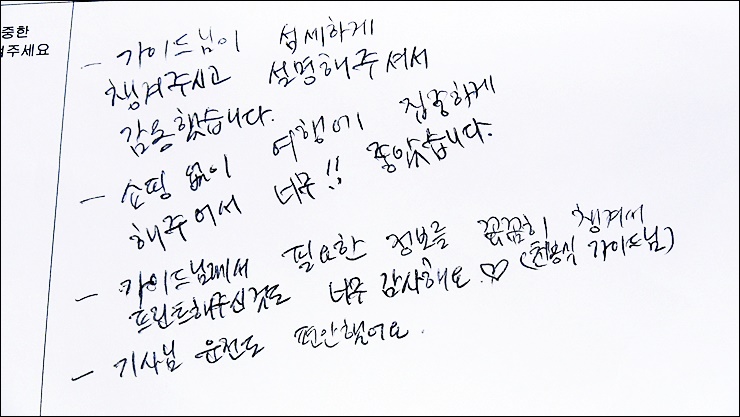 중한
주세요
- 가이드님이 섬세하게
챙겨주시고 설명해주셔서
감동했습니다.
- 쇼핑 없이 여행에 집중하게
해주어서 너무!! 좋았습니다.
- 가이드님께서 필요한 정보를 꼼꼼히 챙겨서
프린트해주신것도 너무 감사해요. ♡ (천용식 가이드님)
- 기사님 운전도 편안했어요.